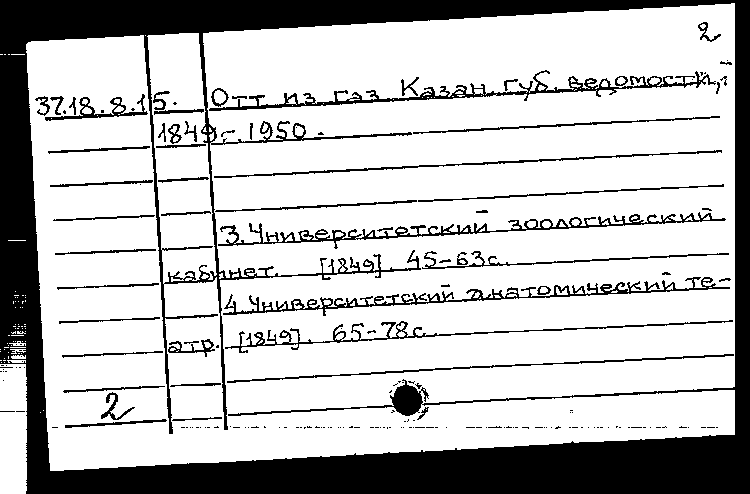 2
37.18.8.15. Отт из газ Казан. губ. ведомости,
1849-.1950.
3. Университетский зоологический
кабинет. [1849]. 45-63с.
4. Университетский анатомический те-
атр. [1849]. 65-78с.
2